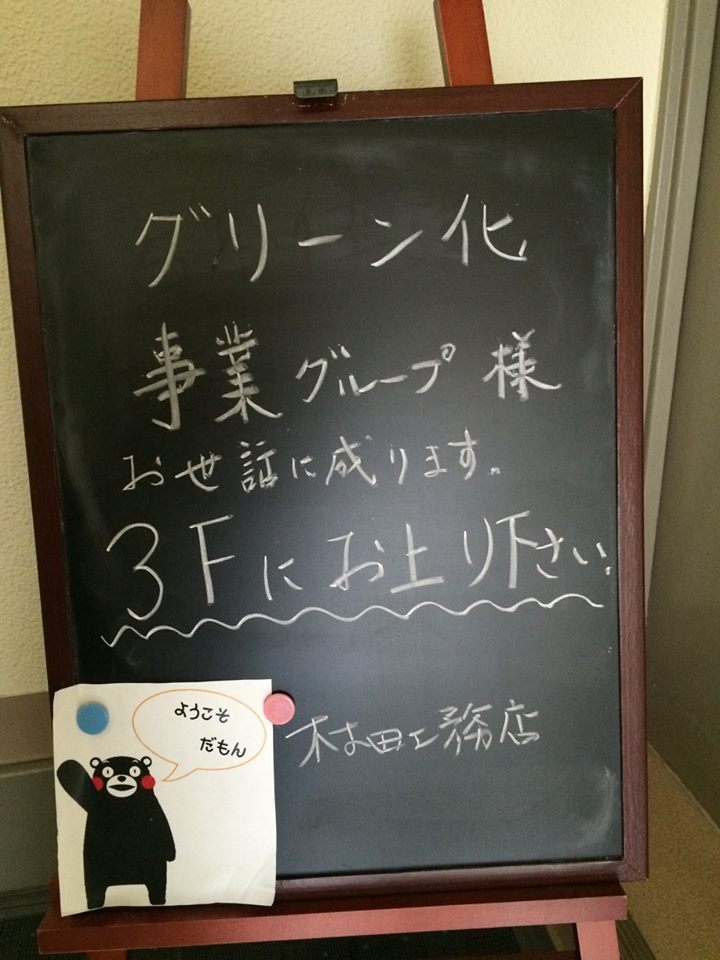 グリーン化
事業グループ様
お世話に成ります。
3Fにお上り下さい
村田工務店
ようこそ
だもん